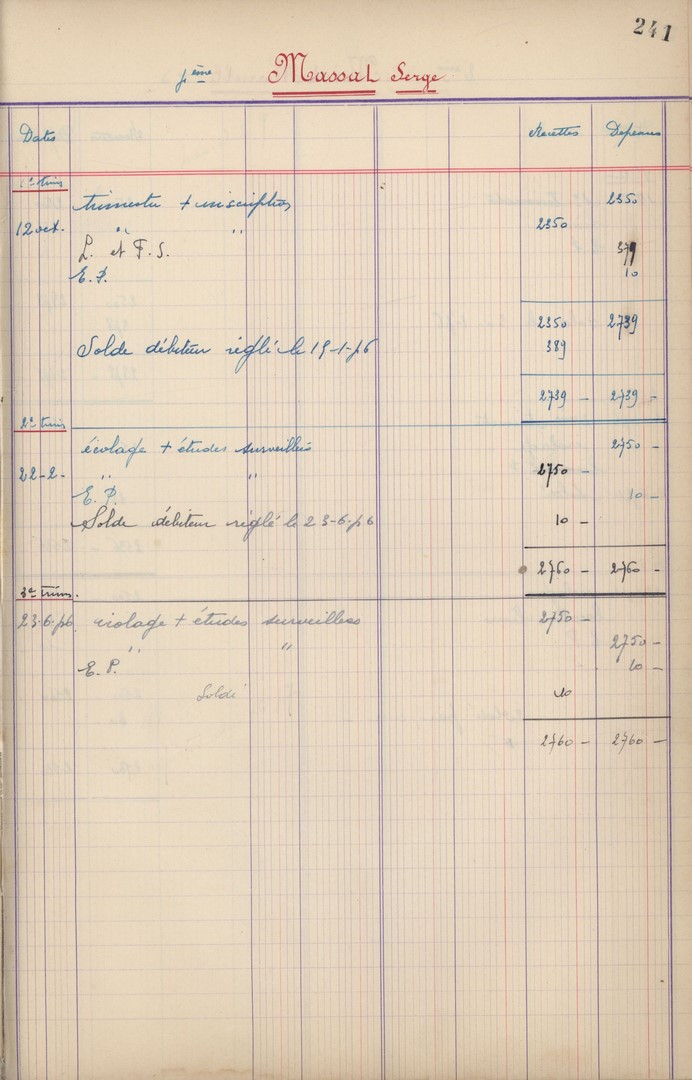 241
Massal Serge
Dates Recettes Dépenses
1er trim
trimestre + inscription 2350
12 oct. " " 2350
L. et F. S. 379
E. P. 10
2350 2739
Solde débiteur réglé le 19-1-56 389
2739 - 2739 -
2e trim
écolage + études surveillées 2750 -
22-2- " " 2750 -
E. P. 10 -
Solde débiteur réglé le 23-6-56 10 -
2760 - 2760 -
3e trim.
23-6-56 écolage + études surveillées 2750 -
" " 2750 -
E. P. 10 -
Soldé 10
2760 - 2760 -